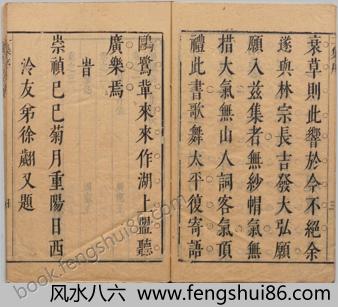 裒草則此響於今不絕余
遂與林宗長吉發大弘願
願入茲集者無紗帽氣無
措大氣無山人詞客氣頂
禮此書歌舞太平復寄語
鷗鷺輩來來作湖上盟聽
廣樂焉
旹
崇禎己巳菊月重陽日西
泠友弟徐翽又題
book.fengshui86.com
风水八六 - www.fengshui86.com